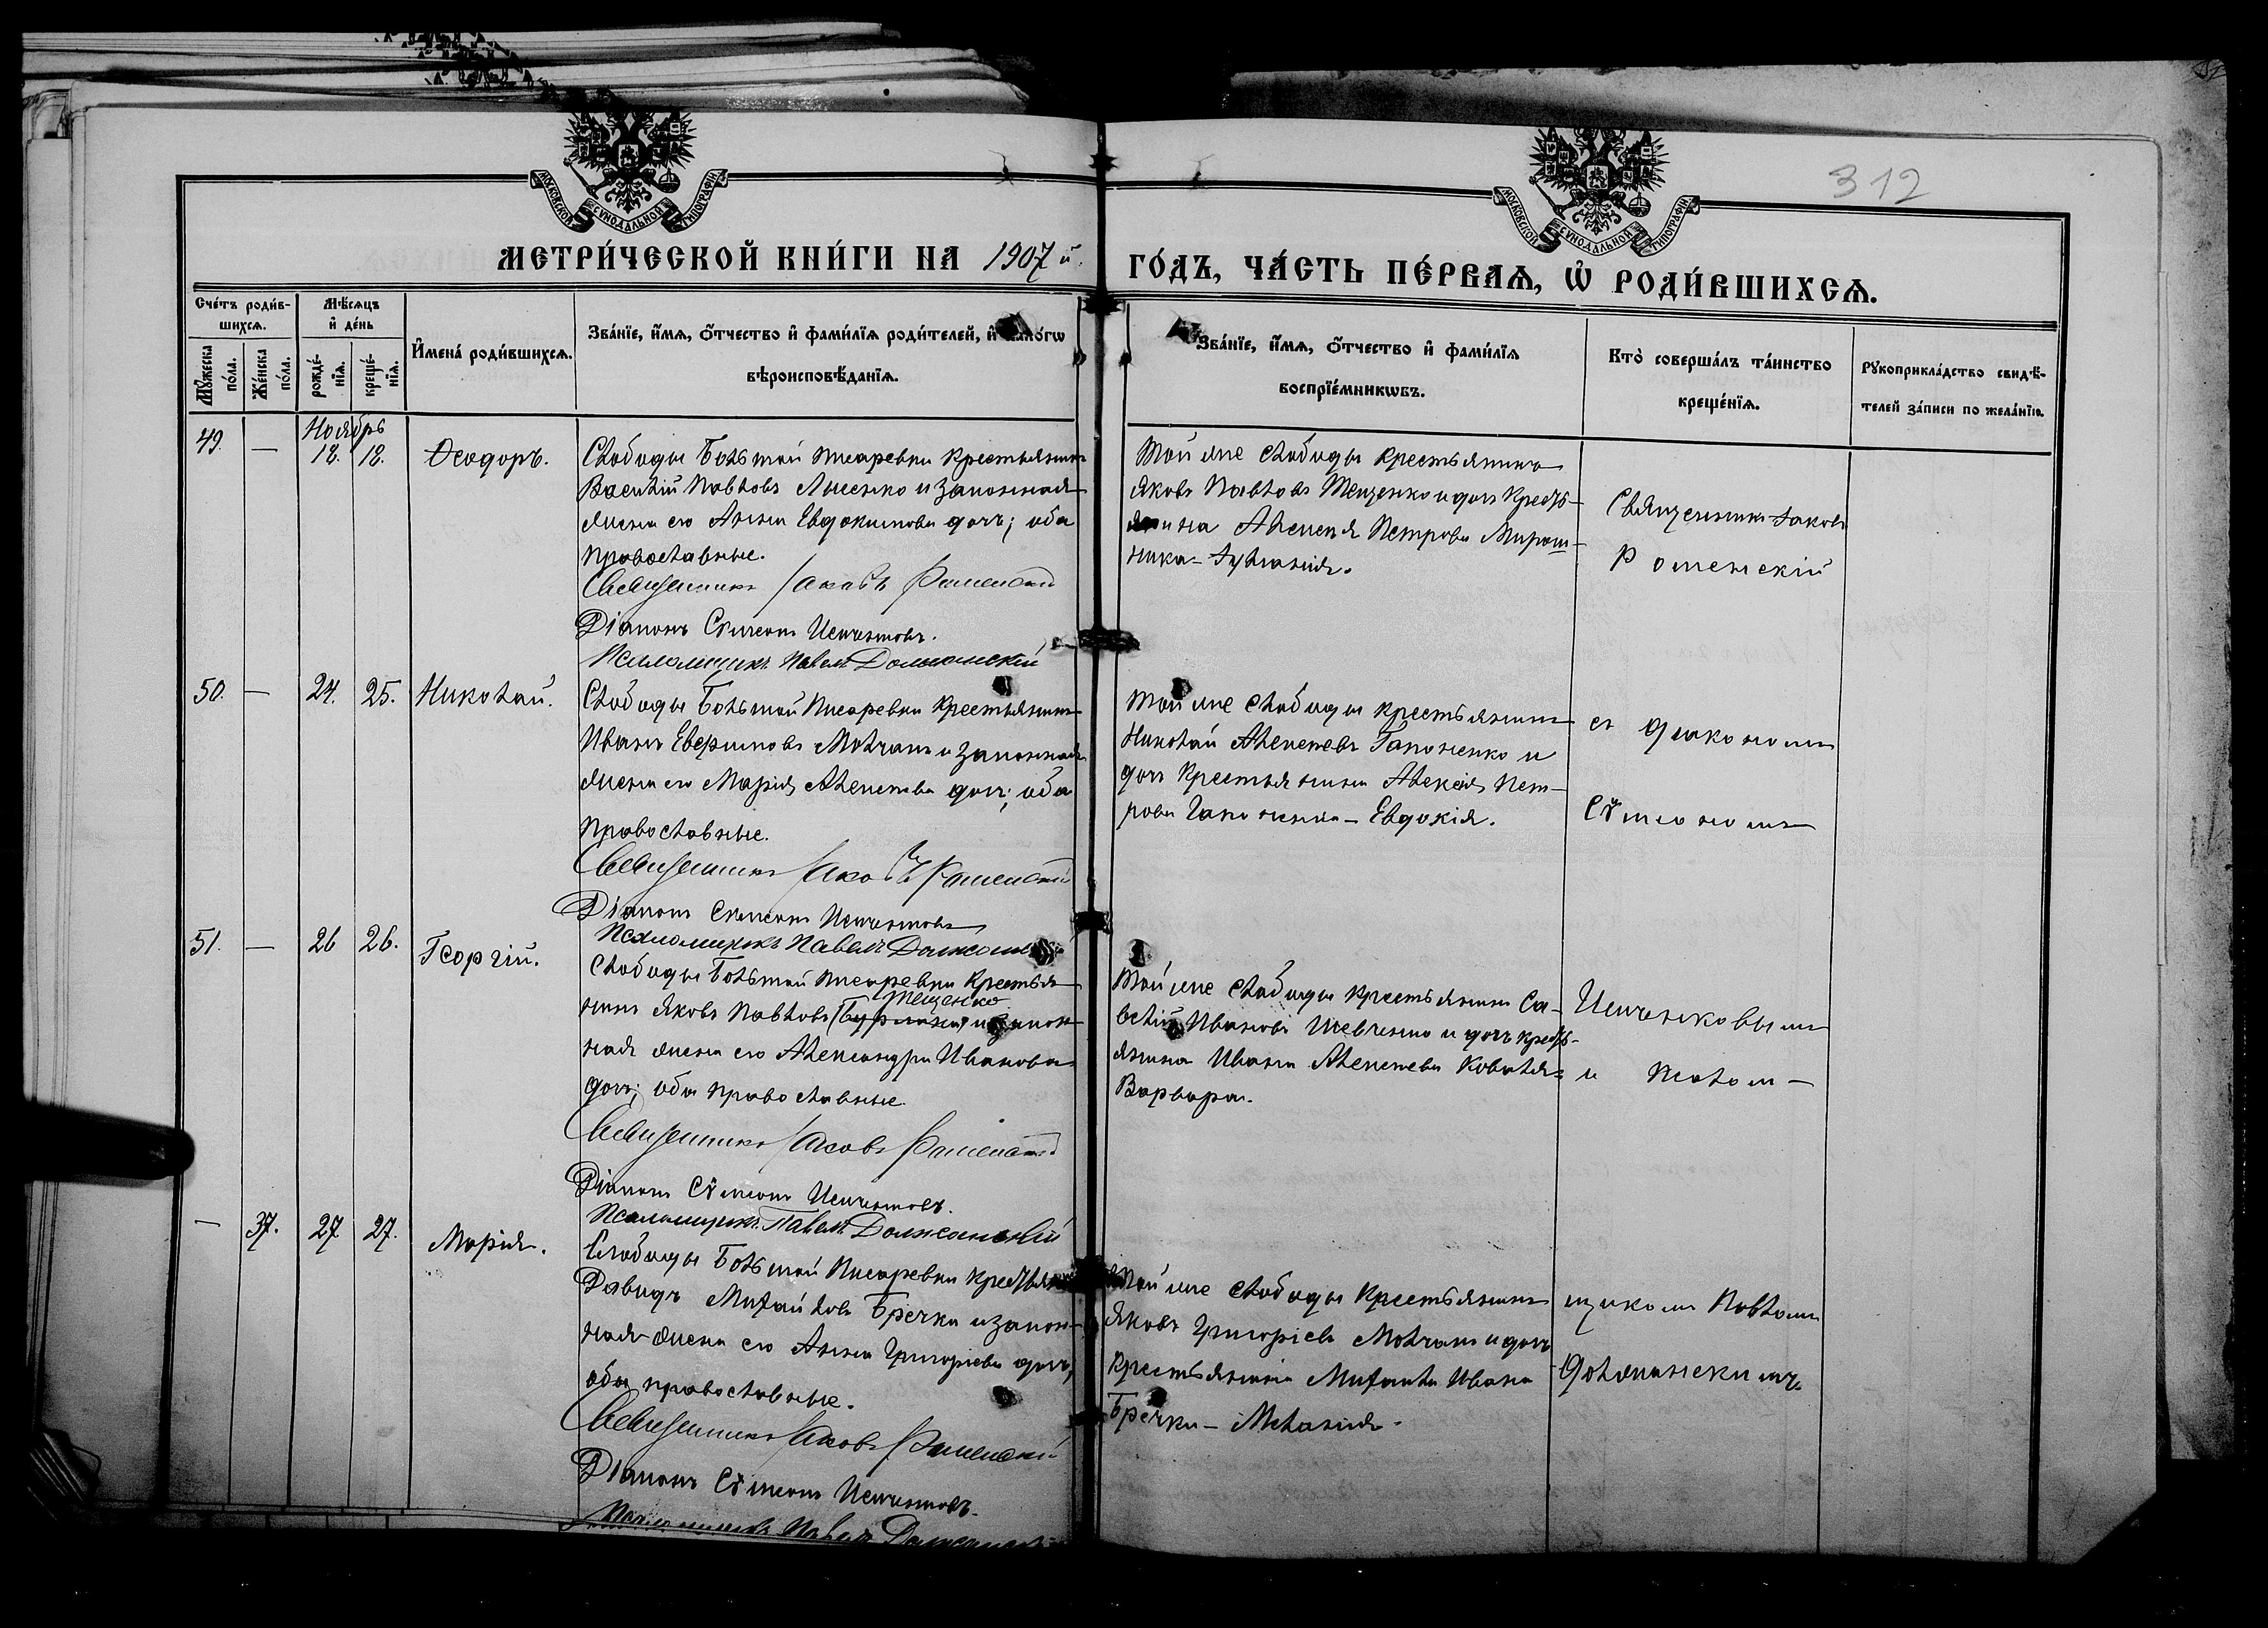 312
МОСКОВСКОЙ СѴНОДАЛЬНОЙ ТИПОГРАФІИ
МОСКОВСКОЙ СѴНОДАЛЬНОЙ ТИПОГРАФІИ
МЕТРИ́ЧЕСКОЙ КНИ́ГИ НА 1907 й.
ГО́ДЪ, ЧА́СТЬ ПЕ́РВАѦ, Ѡ҆ РОДИ́ВШИХСѦ.
Сче́тъ роди́в-
шихсѧ.
Мꙋ́жеска по́ла.
Же́нска по́ла.
Мѣ́сѧцъ
и҆ де́нь
рожде́-
нїѧ.
креще́-
нїѧ.
И҆мена́ роди́вшихсѧ.
Зва́нїе, и҆́мѧ, ѻ҆́тчество и҆ фами́лїѧ роди́телей, и҆
вѣроисповѣ́данїѧ.
Зва́нїе, и҆́мѧ, ѻ҆́тчество и҆ фами́лїѧ
воспрїе́мникѡвъ.
Кто̀ соверша́лъ та́инство
креще́нїѧ.
Рꙋкоприкла́дство свидѣ́-
телей за́писи по жела́нїю.
Ноябрь
49. — 18. 18. Ѳеодоръ.
Слободы Большой Писаревки крестьянинъ
Василій Павловъ Лисенко и законная
жена его Анна Евдокимова дочь; оба
православные.
Священникъ Іаковъ Роменскій
Діаконъ Сѵмеонъ
Псаломщикъ Павелъ Должанскій
Той же слободы крестьянинъ
Яковъ Павловъ Тещенко и дочь кресть-
янина Алексѣя Петрова Мирош-
ника – Іуліанія.
Священникъ Іаковъ
Роменскій
50. — 24. 25. Николай.
Слободы Большой Писаревки крестьянинъ
Иванъ Евфимовъ Молчанъ и законная
жена его Марія Алексѣева дочь; оба
православные.
Священникъ Іаковъ Роменскій
Діаконъ Сѵмеонъ
Псаломщикъ Павелъ
Той же слободы крестьянинъ
Николай Алексѣевъ Гапоненко и
дочь крестьянина Алексія Пет-
рова – Евдокія.
съ діакономъ
Сѵмеономъ
51. — 26 26. Георгій.
Слободы Большой Писаревки крестья-
нинъ Яковъ Павловъ Тещенко и закон-
ная жена его Александра Иванова
дочь; оба православные.
Священникъ Іаковъ Роменскій
Діаконъ Сѵмеонъ
Псаломщикъ Павелъ Должанскій
Той же слободы крестьянинъ Са-
велій Ивановъ Шевченко и дочь кресть-
янина Ивана Алексѣева Коваля-
Варвара.
и псалом-
— 37. 27 27. Марія.
Слободы Большой Писаревки
Давидъ Михайловъ Бречка и закон-
ная жена его Анна Григорьева дочь;
оба православные.
Священникъ Іаковъ Роменскій
Діаконъ Сѵмеонъ
Псаломщикъ Павелъ
Той же слободы крестьянинъ
Яковъ Григоріевъ Молчанъ и дочь
крестьянина Михаила Ивана
Бречки – Меланія.
щикомъ Павломъ
Должанскимъ.